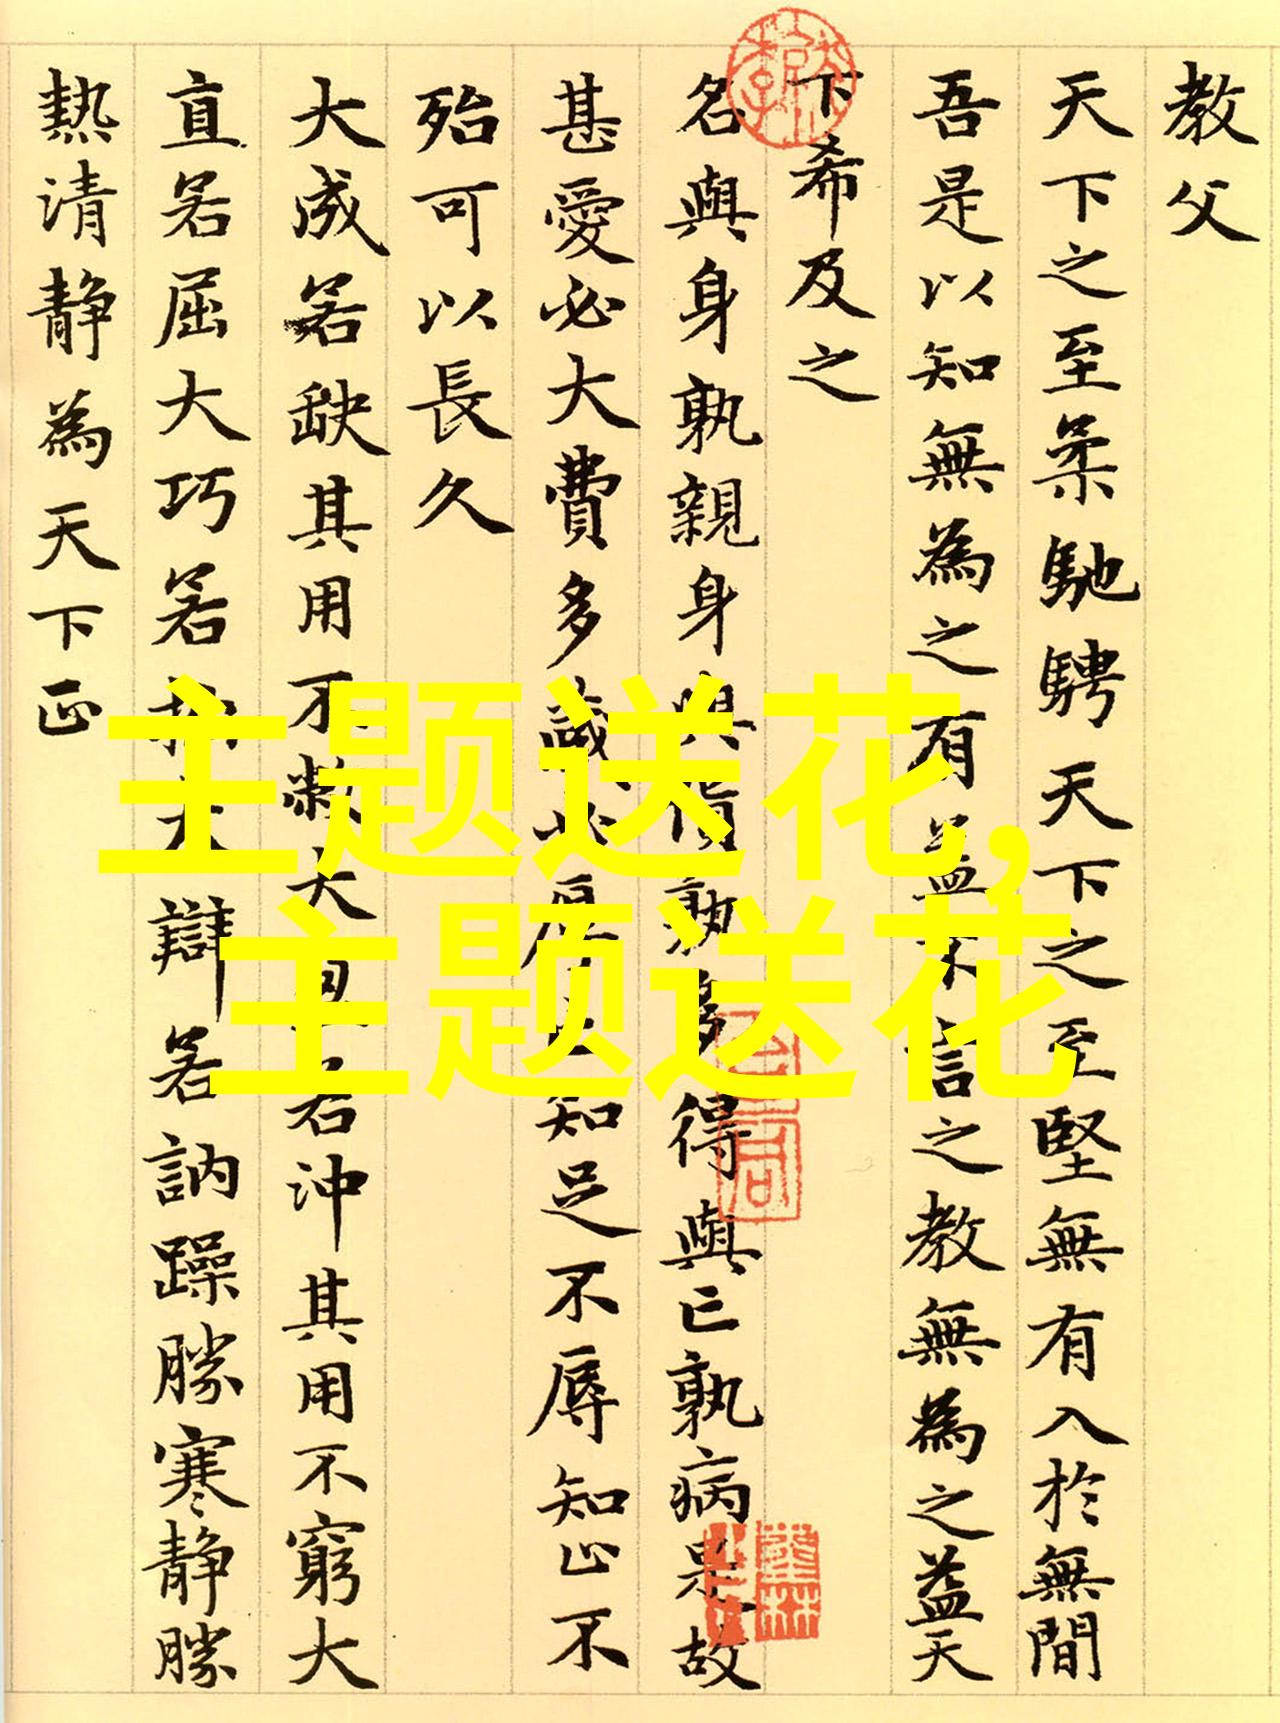 教父
天下之至柔馳騁天下之至堅無有入於無間
吾是以知無為之有益不言之教無為之益天
下希及之
名與身孰親身與貨孰多得與亡孰病是故
甚愛必大費多藏必厚亡知足不辱知止不
殆可以長久
大成若缺其用不敝大盈若沖其用不窮大
直若屈大巧若拙大辯若訥躁勝寒靜勝
熱清靜為天下正
主题送花,
主题送花